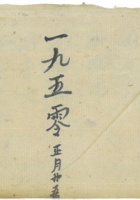 一九五零
五月廿五